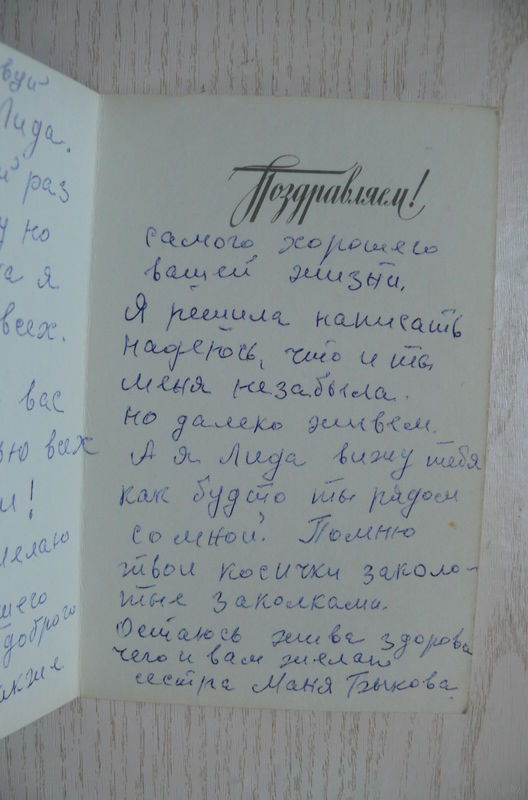 Лида.
раз
но
я
всех.
вас
всех
Поздравляем!
самого хорошего
вашей жизни.
Я решила написать
надеюсь, что и ты
меня незабыла.
но далеко живем.
А я Лида вижу тебя
как будто ты рядом
со мной. Помню
твои косички заколо-
тые заколками.
Остаюсь жива здорова
чего и вам желаю
сестра Маня Быкова
доброго